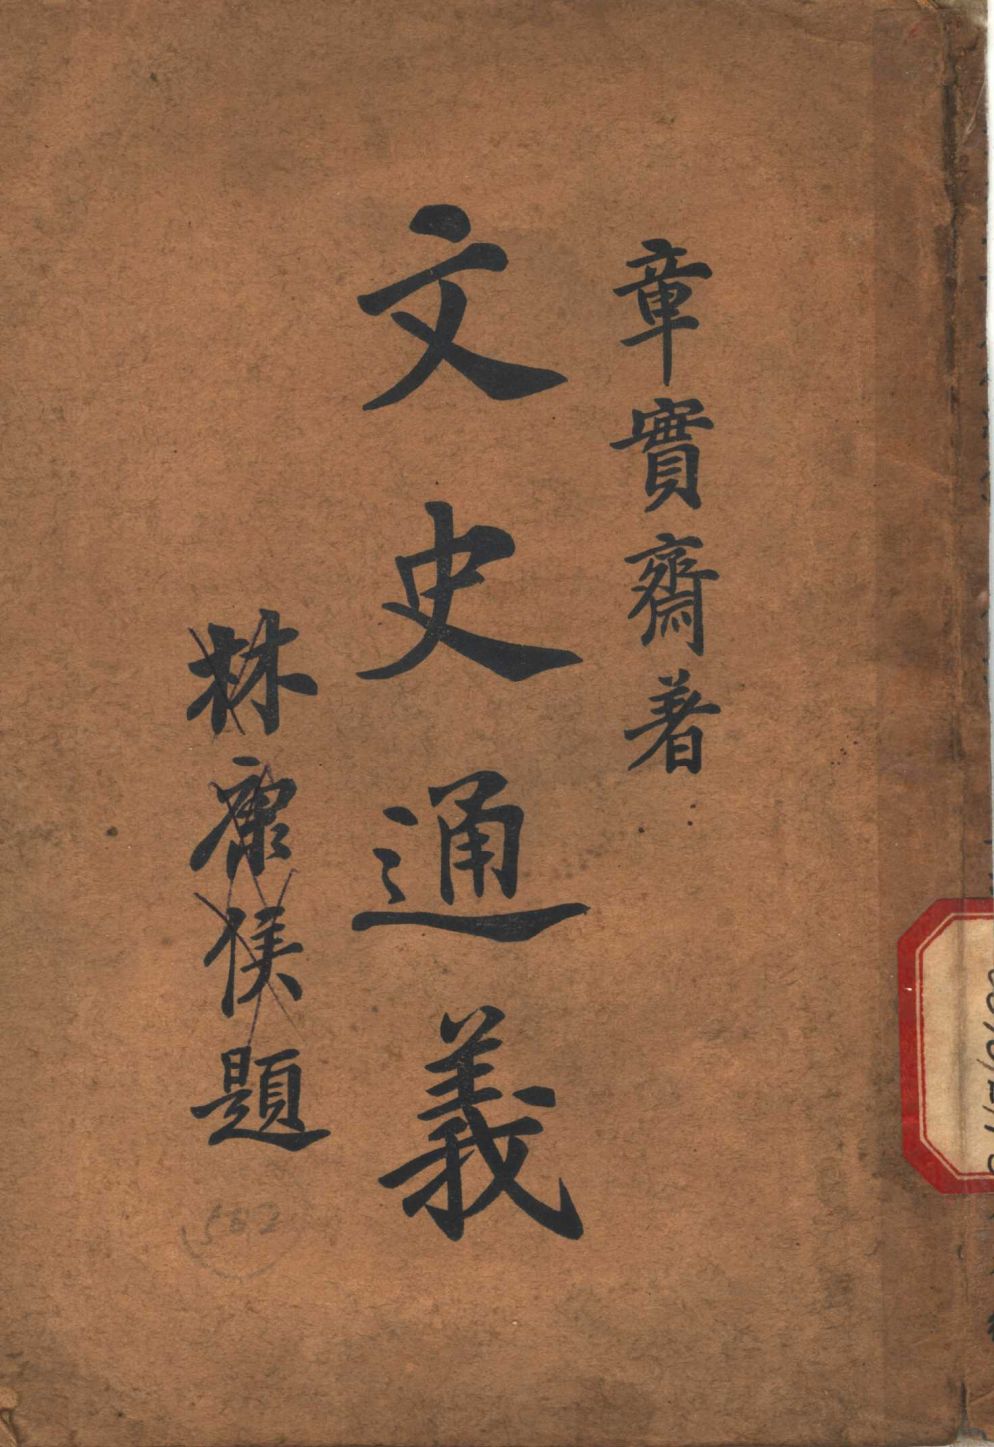 章實齋著
文史通義
林康侯題
582